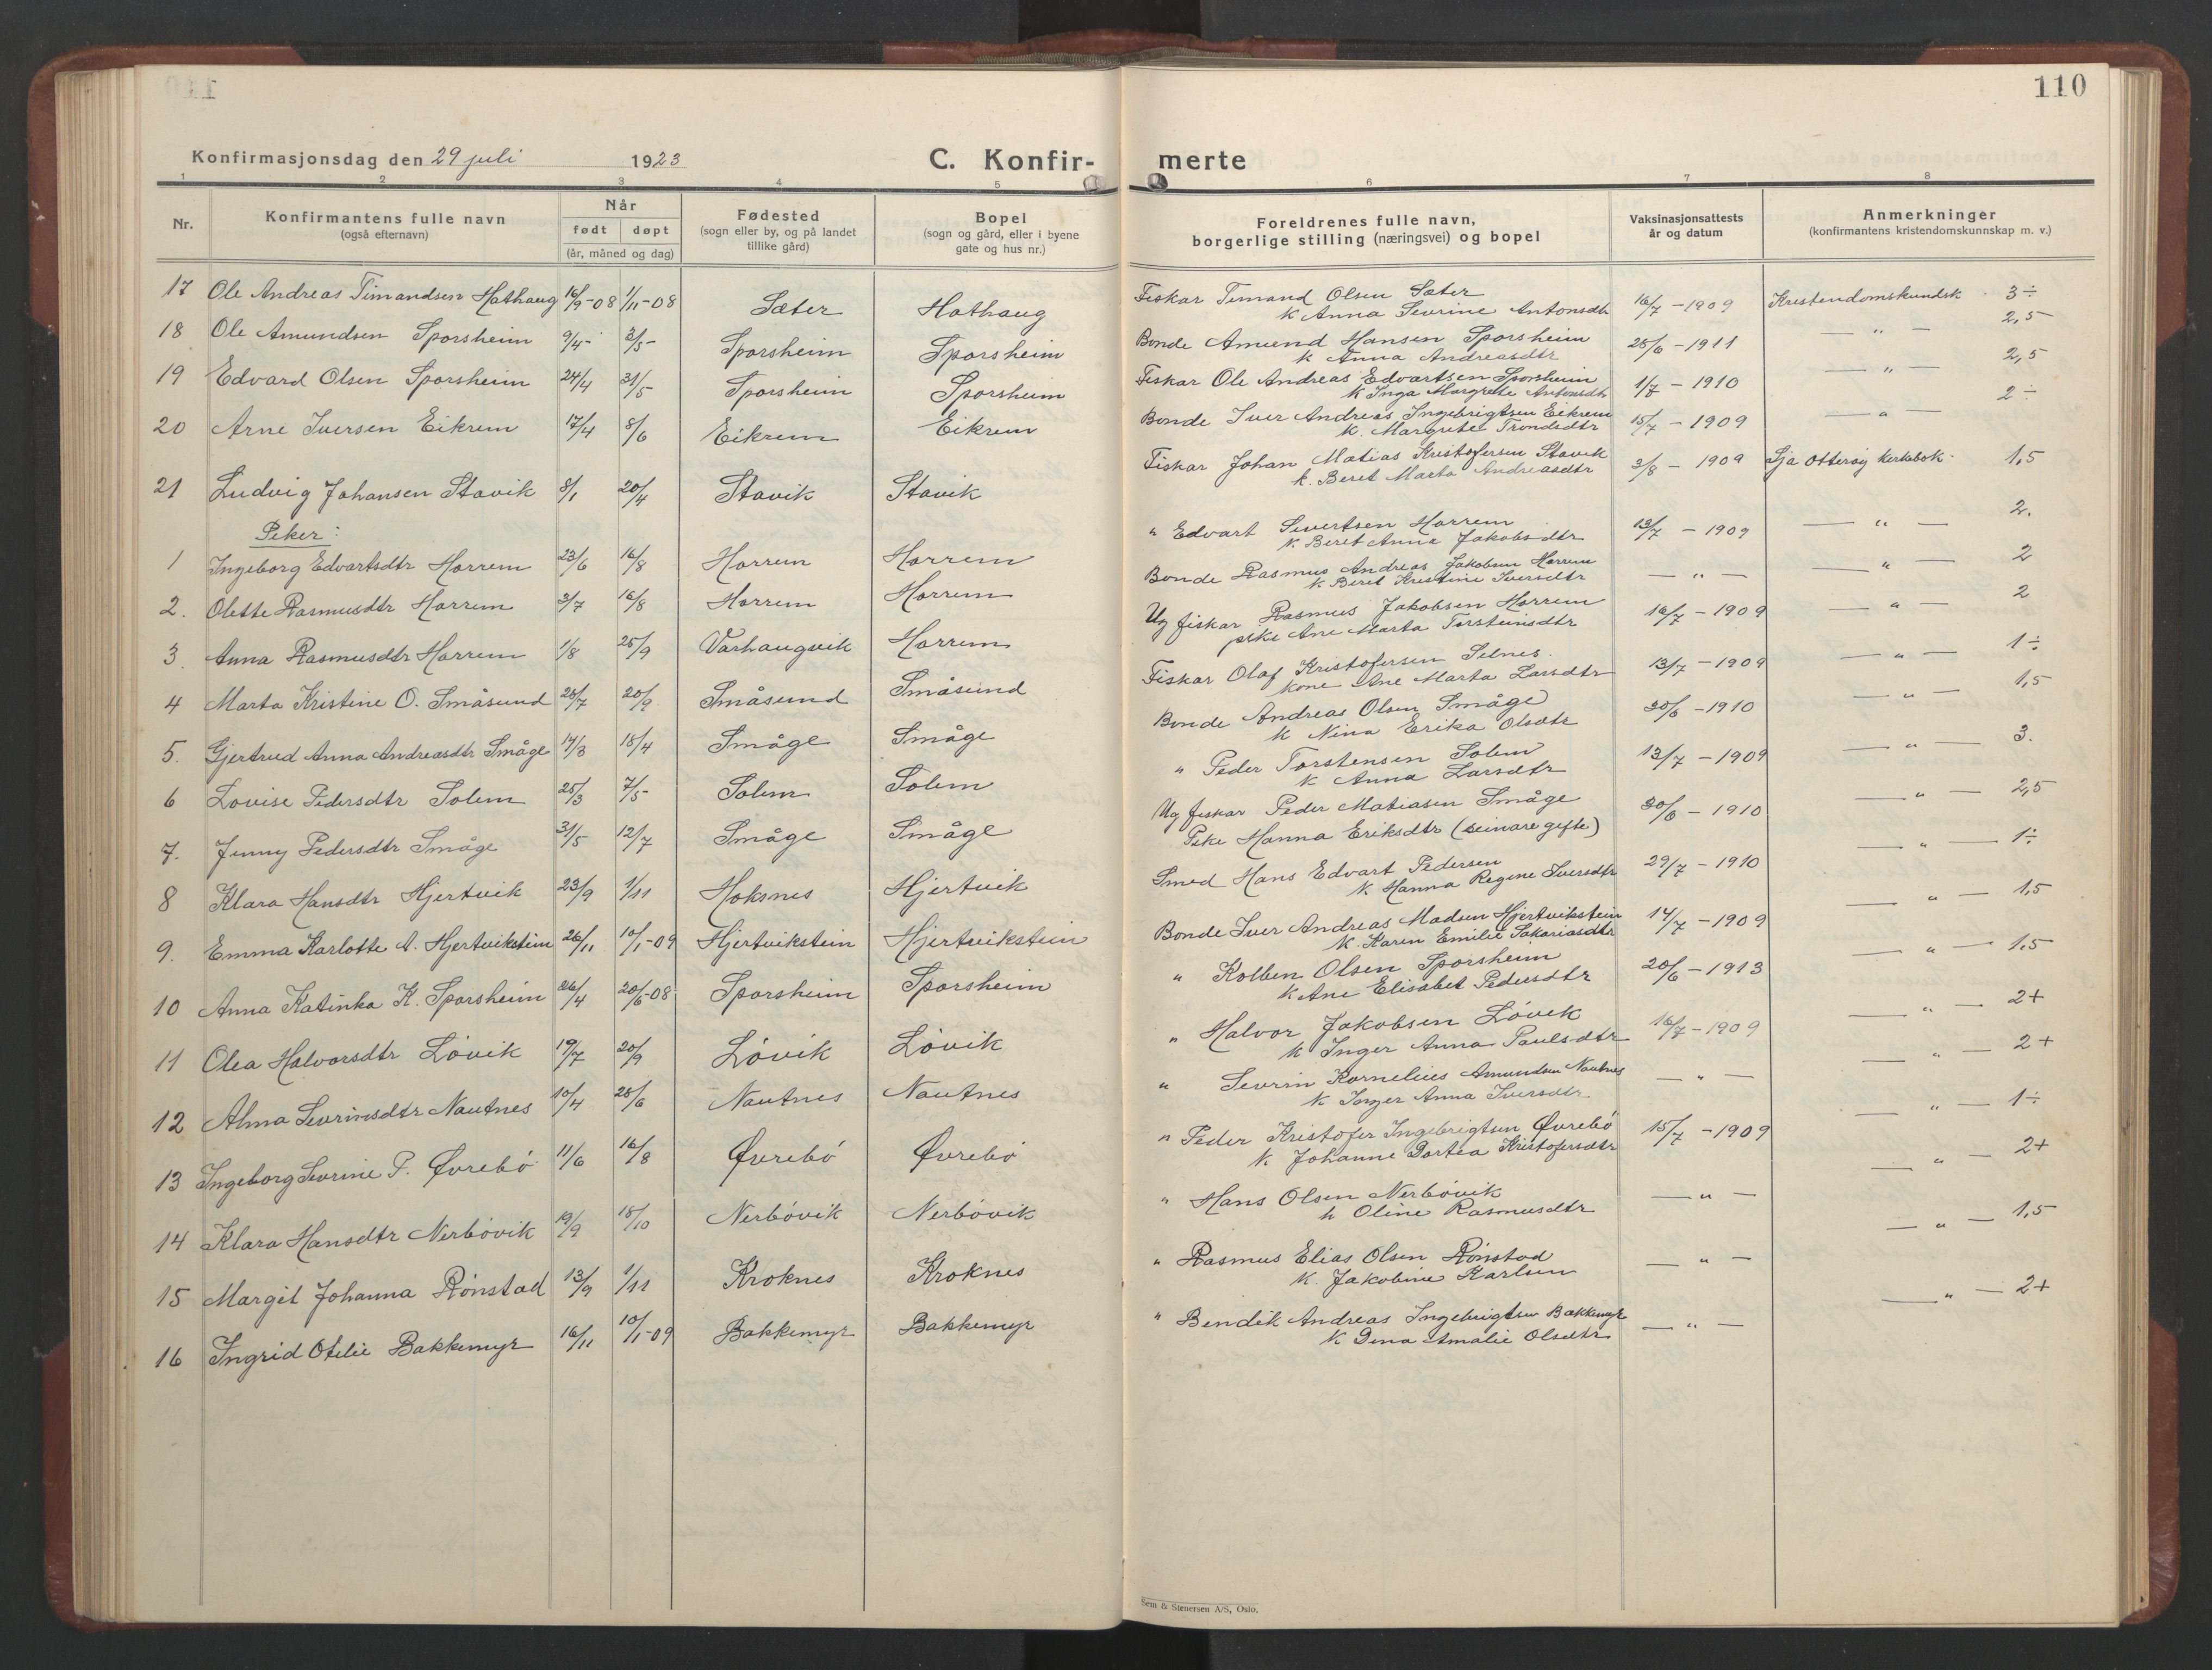 110
Konfirmasjonsdag den 29 juli 1923
C. Konfir-
merte
1 2 3 4 5 6 7 8
Nr.
Konfirmantens fulle navn
(også efternavn)
Når
født døpt
(år, måned og dag)
Fødested
(sogn eller by, og på landet
tillike gård)
Bopel
(sogn og gård, eller i byene
gate og hus nr.)
Foreldrenes fulle navn,
borgerlige stilling (næringsvei) og bopel
Vaksinasjonsattests
år og datum
Anmerkninger
(konfirmantens kristendomskunnskap m. v.)
17 Ole Andreas Timandsen Hathaug 16/9-08 1/11-08 Sæter Hathaug
Fiskar Timand Olsen Sæter
K Anna Sevrine Antonsdtr 16/7 - 1909 Kristendomskundsk 3÷
18 Ole Amundsen Sporsheim 9/4- 3/5- Sporsheim Sporsheim
Bonde Amund Hansen Sporsheim
K Anna Andreasdtr 25/6 - 1911 — " — 2,5
19 Edvard Olsen Sporsheim 24/4 31/5 Sporsheim Sporsheim
Fiskar Ole Andreas Edvartsen Sporsheim
K Inga Margrete Antonsdtr 1/7 - 1910 — " — 2,5
20 Arne Iversen Eikrem 17/4 8/6 Eikrem Eikrem
Bonde Iver Andreas Ingebrigtsen Eikrem
K. Margrete Trondsdtr 15/7 - 1909 — " — 2÷
21 Ludvig Johansen Stavik 8/1 20/4 Stavik Stavik
Fiskar Johan Matias Kristofersen Stavik
k. Beret Marta Andreasdtr 3/8 - 1909 Sja Otterøy kerkebok 1,5
Peker:
1 Ingeborg Edvartsdtr Harrem 23/6 16/8 Harrem Harrem
" Edvart Sivertsen Harrem
K. Beret Anna Jakobsdtr 13/7 - 1909 — " — 2.
2. Olette Rasmusdtr Harrem 3/7 16/8 Harrem Harrem
Bonde Rasmus Andreas Jakobsen Harrem
K Beret Kristine Iversdtr — " — — " — 2
3. Anna Rasmusdtr Harrem 1/8 25/9 Varhaugvik Harrem
Ug fiskar Rasmus Jakobsen Harrem
peke Ane Marta Torsteinsdtr 16/7 - 1909 — " — 2
4 Marta Kristine O. Småsund 20/7 20/9 Småsund Småsund
Fiskar Olaf Kristofersen Selnes.
Kone Ane Marta Larsdtr 13/7 - 1909 — " — 1÷
5. Gjertrud Anna Andreasdtr Småge 14/3 18/4 Småge Småge
Bonde Andreas Olsen Småge
K Nina Erika Olsdtr 30/6 - 1910 — " — 1,5
6 Lovise Pedersdtr Solem 25/3 7/5 Solem Solem
" Peder Torstensen Solem
K Anna Larsdtr 13/7 - 1909 — " — 3.
7. Jenny Pedersdtr Småge 31/5 12/7 Småge Småge
Ug fiskar Peder Matiasen Småge
Peke Hanna Eriksdtr (seinare gifte) 30/6 - 1910 — " — 2,5
8 Klara Hansdtr Hjertvik 23/9 1/11 Hoksnes Hjertvik
Smed Hans Edvart Pedersen
K. Hanna Regine Iversdtr 29/7 - 1910 — " — 1÷
9. Emma Karlotte A. Hjertvikstein 26/11 10/1-09 Hjertvikstein Hjertvikstein
Bonde Iver Andreas Madsen Hjertvikstein
K. Karen Emilie Sakariasdtr 14/7 - 1909 — " — 1,5
10 Anna Katinka K. Sporsheim 26/4 20/6-08 Sporsheim Sporsheim
" Kolben Olsen Sporsheim
K Ane Elisabet Pedersdtr 20/6 - 1913 — " — 1,5
11 Olea Halvorsdtr Lövik 19/7 20/9 Lövik Lövik
" Halvor Jakobsen Lövik
K Inger Anna Paulsdtr 16/7 - 1909 — " — 2+
12 Alma Sevrinsdtr Nautnes 10/4 28/6 Nautnes Nautnes
" Sevrin Kornelius Amundsen Nautnes
K Inger Anna Iversdtr — " — — " — 2+
13 Ingeborg Sevrine P. Øvrebö 11/6 16/8 Øvrebö Øvrebö
" Peder Kristofer Ingebrigtsen Øvrebö
K. Johanne Dortea Kristofersdtr 15/7 - 1909 — " — 1÷
14 Klara Hansdtr Nerbövik 19/9 18/10 Nerbövik Nerbövik
" Hans Olsen Nerbövik
k Oline Rasmusdtr — " — — " — 2+
15 Margit Johanna Rönstad 13/9 1/11 Kroknes Kroknes
" Rasmus Elias Olsen Rönstad
K. Jakobine Karlsen — " — — " — 1,5
16 Ingrid Otelie Bakkemyr 16/11 10/1-09 Bakkemyr Bakkemyr
" Bendik Andreas Ingebrigtsen Bakkemyr
K Dena Amalie Olsdtr — " — — " — 2+
Sem & Stenersen A/S, Oslo.